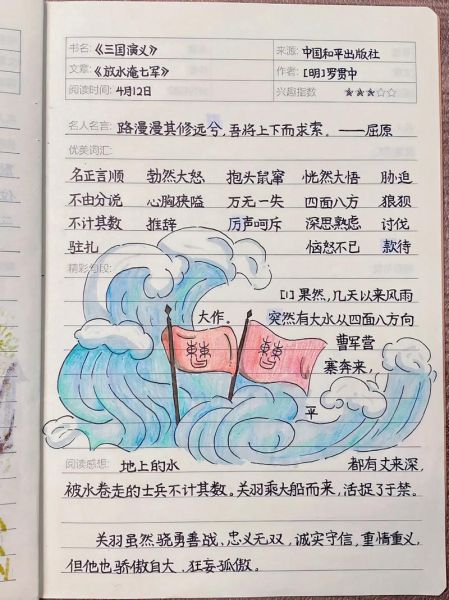 书名:《三国演义》 来源: 中国和平出版社
文章:《放水淹七军》 作者: [明]罗贯中
阅读时间: 4月12日 兴趣指数 ★★★☆☆
名人名言: 路漫漫其修远兮,吾将上下而求索。——屈原
优美词汇:
名正言顺 勃然大怒 抱头鼠窜 恍然大悟 胁迫
不由分说 心胸狭隘 万无一失 四面八方 狼狈
不计其数 推辞 厉声呵斥 深思熟虑 讨伐
驻扎 恼怒不已 款待
精彩句段:
[1]果然,几天以来风雨
大作。 突然有大水从四面八方向
曹军营
寨奔来,
平
阅读感想: 地上的水 都有丈来深,
被水卷走的士兵不计其数。关羽乘大船而来,活捉了于禁。
关羽虽然骁勇善战,忠义无双,诚实守信,重情重义,
但他也骄傲自大,狂妄孤傲。